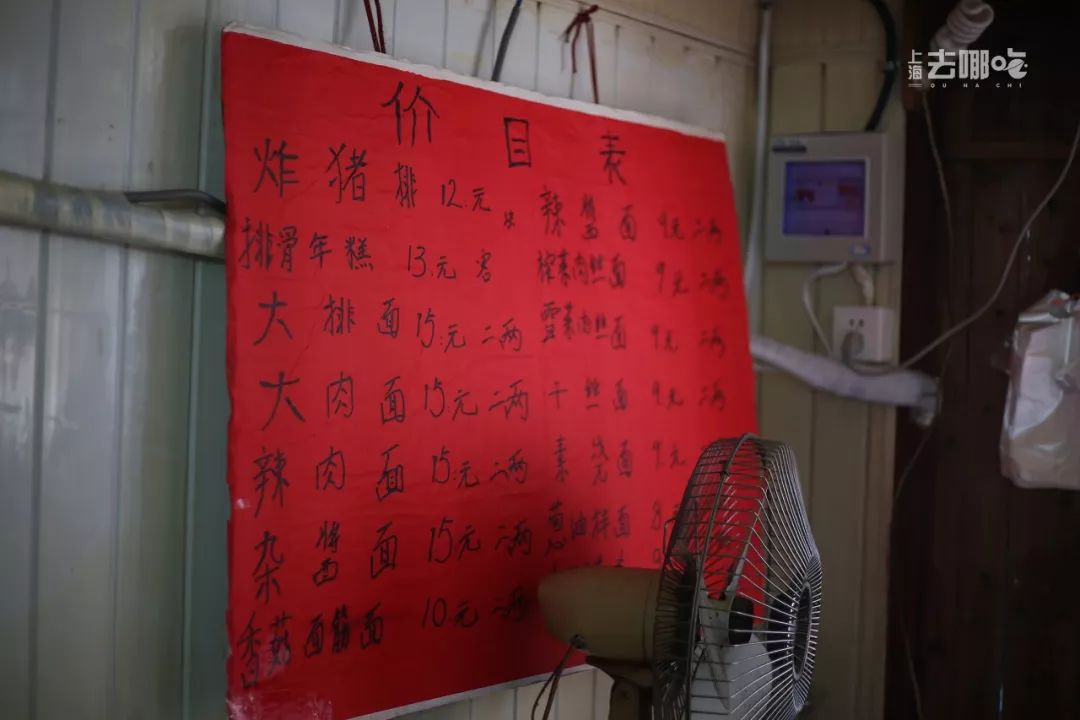 上海去哪吃
QU NA CHI
价目表
炸猪排 12.元
排骨年糕 13.元 客
大排面 15.元 二两
大肉面 15.元 二两
辣肉面 15.元 二两
杂酱面 15元 二两
香菇面筋面 10.元 二两
辣酱面 9元 二两
榨菜肉丝面 9元 二两
雪菜肉丝面 9元 二两
干丝面 9元 二两
素浇面 9元
葱油拌面 8